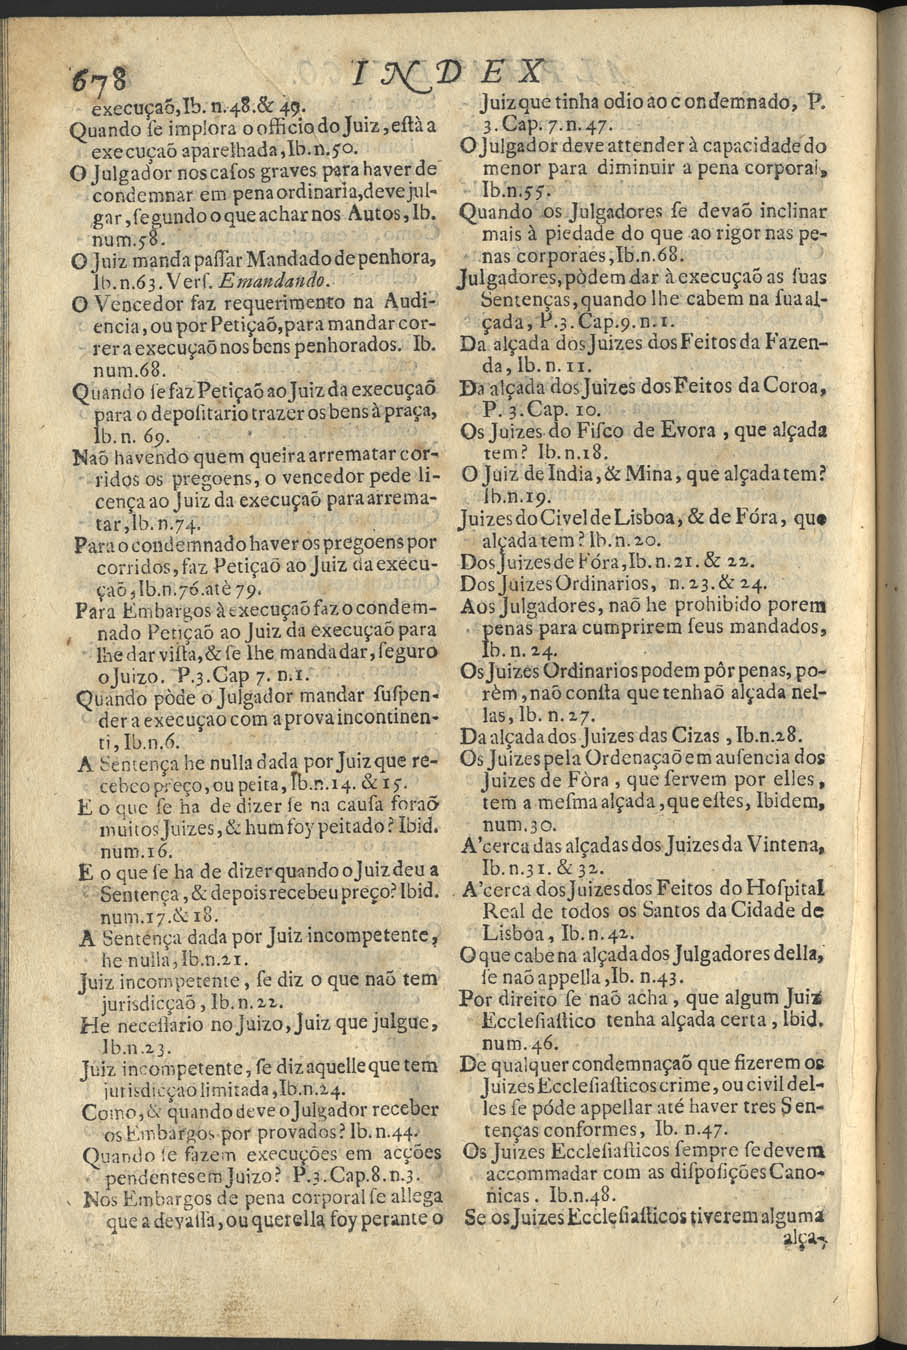 678
INDEX
execuçaõ, Ib. n. 48. & 49.
Quando ſe implora o officio do Juiz, eſtà a
execuçaõ aparelhada, Ib. n. 50.
O Julgador nos caſos graves para haver de
condemnar em pena ordinaria, deve jul-
gar, ſegundo o que achar nos Autos, Ib.
num. 58.
O Juiz manda paſſar Mandado de penhora,
Ib. n. 63. Verſ. Emandando.
O Vencedor faz requerimento na Audi-
encia, ou por Petiçaõ, para mandar cor-
rer a execuçaõ nos bens penhorados. Ib.
num. 68.
Quando ſe faz Petiçaõ ao Juiz da execuçaõ
para o depoſitario trazer os bens à praça,
Ib. n. 69.
Naõ havendo quem queira arrematar cor-
ridos os pregoens, o vencedor pede li-
cença ao Juiz da execuçaõ para arrema-
tar, Ib. n. 74.
Para o condemnado haver os pregoens por
corridos, faz Petiçaõ ao Juiz da execu-
çaõ, Ib. n. 76. atè 79.
Para Embargos à execuçaõ faz o condem-
nado Petiçaõ ao Juiz da execuçaõ para
lhe dar viſta, & ſe lhe manda dar, ſeguro
o Juizo. P. 3. Cap 7. n. 1.
Quando pòde o Julgador mandar ſuſpen-
der a execuçao com a prova incontinen-
ti, Ib. n. 6.
A Sentença he nulla dada por Juiz que re-
cebeo preço, ou peita, Ib. n. 14. & 15.
E o que ſe ha de dizer ſe na cauſa foraõ
muitos Juizes, & hum foy peitado? Ibid.
num. 16.
E o que ſe ha de dizer quando o Juiz deu a
Sentença, & depois recebeu preço? Ibid.
num. 17. & 18.
A Sentença dada por Juiz incompetente,
he nulla, Ib. n. 21.
Juiz incompetente, ſe diz o que naõ tem
jurisdicçaõ, Ib. n. 22.
He neceſſario no Juizo, Juiz que julgue,
Ib. n. 23.
Juiz incompetente, ſe diz aquelle que tem
jurisdicçao limitada, Ib. n. 24.
Como, & quando deve o Julgador receber
os Embargos por provados? Ib. n. 44.
Quando ſe fazem execuções em acções
pendentes em Juizo? P. 3. Cap. 8. n. 3.
Nos Embargos de pena corporal ſe allega
que a devaſſa, ou querella foy perante o
Juiz que tinha odio ao condemnado, P.
3. Cap. 7. n. 47.
O Julgador deve attender à capacidade do
menor para diminuir a pena corporal,
Ib. n. 55.
Quando os Julgadores ſe devaõ inclinar
mais à piedade do que ao rigor nas pe-
nas corporaes, Ib. n. 68.
Julgadores, pòdem dar à execuçaõ as ſuas
Sentenças, quando lhe cabem na ſua al-
çada, P. 3. Cap. 9. n. 1.
Da alçada dos Juizes dos Feitos da Fazen-
da, Ib. n. 11.
Da alçada dos Juizes dos Feitos da Coroa,
P. 3. Cap. 10.
Os Juizes do Fiſco de Evora, que alçada
tem? Ib. n. 18.
O Juiz de India, & Mina, que alçada tem?
Ib. n. 19.
Juizes do Civel de Lisboa, & de Fóra, que
alçada tem? Ib. n. 20.
Dos Juizes de Fóra, Ib. n. 21. & 22.
Dos Juizes Ordinarios, n. 23. & 24.
Aos Julgadores, naõ he prohibido porem
penas para cumprirem ſeus mandados,
Ib. n. 24.
Os Juizes Ordinarios podem pôr penas, po-
rèm, naõ conſta que tenhaõ alçada nel-
las, Ib. n. 27.
Da alçada dos Juizes das Cizas, Ib. n. 28.
Os Juizes pela Ordenaçaõ em auſencia dos
Juizes de Fòra, que ſervem por elles,
tem a meſma alçada, que eſtes, Ibidem,
num. 30.
A'cerca das alçadas dos Juizes da Vintena,
Ib. n. 31. & 32.
A'cerca dos Juizes dos Feitos do Hoſpital
Real de todos os Santos da Cidade de
Lisboa, Ib. n. 42.
O que cabe na alçada dos Julgadores della,
ſe naõ appella, Ib. n. 43.
Por direito ſe naõ acha, que algum Juiz
Eccleſiaſtico tenha alçada certa, Ibid.
num. 46.
De qualquer condemnaçaõ que fizerem os
Juizes Eccleſiaſticos crime, ou civil del-
les ſe póde appellar até haver tres Sen-
tenças conformes, Ib. n. 47.
Os Juizes Eccleſiaſticos ſempre ſe devem
accommadar com as diſpoſições Cano-
nicas. Ib. n. 48.
Se os Juizes Eccleſiaſticos tiverem alguma
alça-